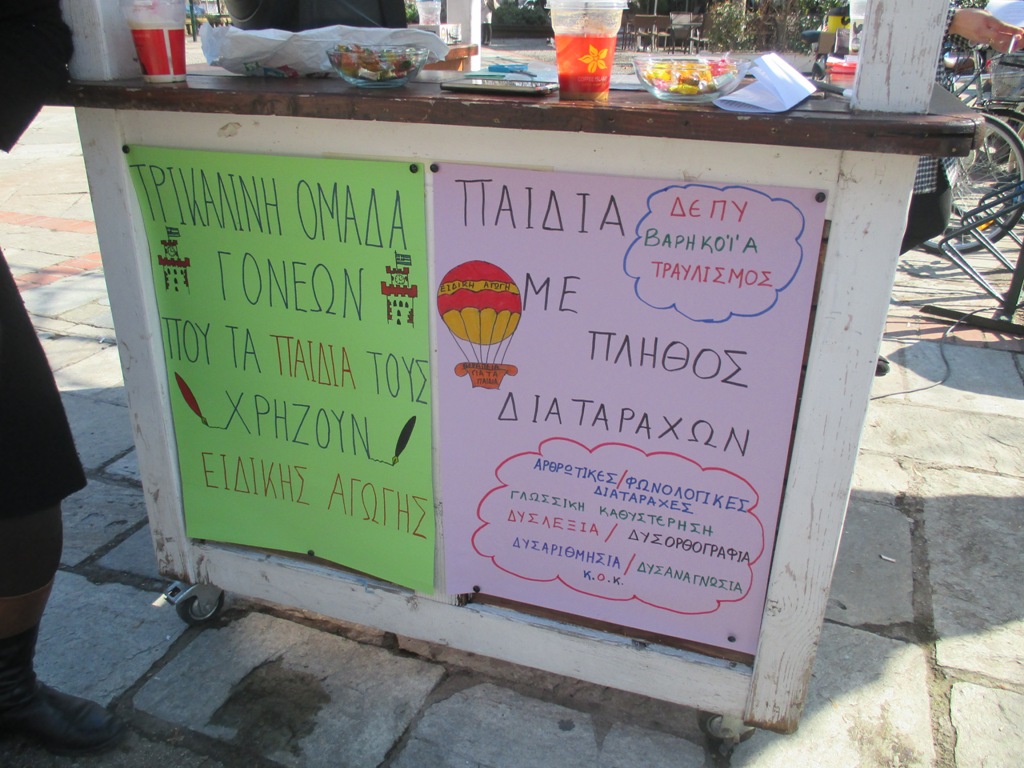 ΤΡΙΚΑΛΙΝΗ ΟΜΑΔΑ
ΓΟΝΕΩΝ
ΠΟΥ ΤΑ ΠΑΙΔΙΑ ΤΟΥΣ
ΧΡΗΖΟΥΝ
ΕΙΔΙΚΗΣ ΑΓΩΓΗΣ
ΠΑΙΔΙΑ
ΔΕΠΥ
ΒΑΡΗΚΟΪ'Α
ΤΡΑΥΛΙΣΜΟΣ
ΕΙΔΙΚΗ ΑΓΩΓΗ
ΓΙΑ ΤΑ
ΠΑΙΔΙΑ
ΜΕ
ΠΛΗΘΟΣ
ΔΙΑΤΑΡΑΧΩΝ
ΑΡΘΡΩΤΙΚΕΣ/ΦΩΝΟΛΟΓΙΚΕΣ
ΔΙΑΤΑΡΑΧΕΣ
ΓΛΩΣΣΙΚΗ ΚΑΘΥΣΤΕΡΗΣΗ
ΔΥΣΛΕΞΙΑ / ΔΥΣΟΡΘΟΓΡΑΦΙΑ
ΔΥΣΑΡΙΘΜΗΣΙΑ / ΔΥΣΑΝΑΓΝΩΣΙΑ
Κ.Ο.Κ.